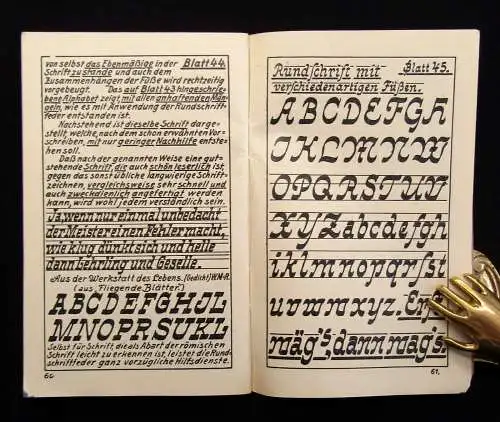 von selbst das Ebenmäßige in der Blatt 44.
Schrift zustande und auch dem
Zusammenhängen der Füße wird rechtzeitig
vorgebeugt. Das auf Blatt 43 hingeschrie-
bene Alphabet zeigt mit allen anhaftenden Män-
geln, wie es mit Anwendung der Rundschrift-
feder entstanden ist.
Nachstehend ist dieselbe Schrift darge-
stellt, welche, nach dem schon erwähnten Vor-
schreiben, mit nur geringer Nachhilfe entste-
hen soll.
Daß nach der genannten Weise eine gut-
stehende Schrift, die auch schön leserlich ist,
gegen das sonst übliche langwierige Schrift-
zeichnen, vergleichsweise sehr schnell und
auch zweckdienlich angefertigt werden
kann, wird wohl jedem verständlich sein.
Ja, wenn nur einmal unbedacht
der Meister einen Fehler macht,
wie klug dünkt sich und helle
dann Lehrling und Geselle.
Aus der Werkstatt des Lebens. (Gedicht)
(aus „Fliegende Blätter“.)
ABCDEFGHJL
MNOPRSUKL
Selbst für Schrift, die als Abart der römischen
Schrift leicht zu erkennen ist, leistet die Rund-
schriftfeder ganz vorzügliche Hilfsdienste.
60
Rundschrift mit Blatt 45.
verschiedenartigen Füßen.
ABCDEFGH
IKLMNW
OPQRSTUV
XYZ abcdefgh
iklmnopqrſst
uvwxyz. Erst
wäg's, dann wag's.
61.